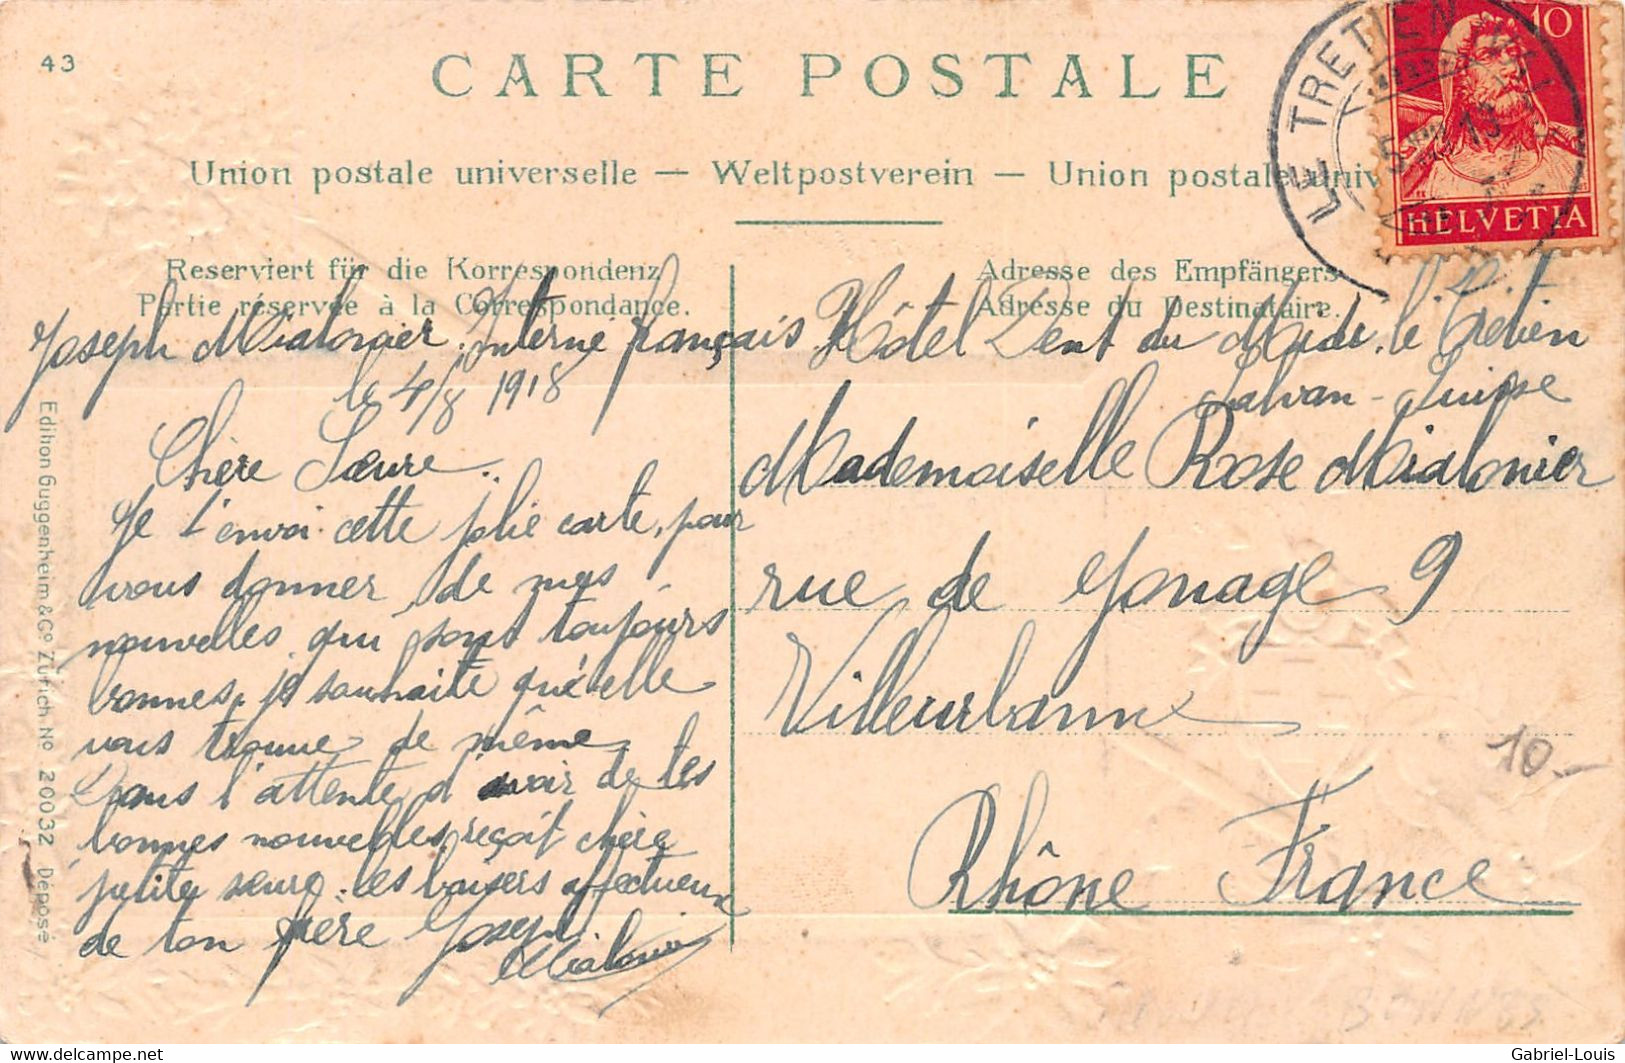 43
CARTE POSTALE
Union postale universelle — Weltpostverein — Union postale univ
10
HELVETIA
LE TRETIEN
5 VIII 18
Reserviert für die Korrespondenz
Partie réservée à la Correspondance.
Adresse des Empfängers
Adresse du Destinataire.
Joseph Mialonier. Interné français Hôtel Dent du Midi. le Trétien
Salvan - Suisse
le 4/8 1918
Chère Sœure.
Je t'envoi cette jolie carte, pour
vous donner de mes
nouvelles qui sont toujours
bonnes, je souhaite qu'elle
vous trouve de même
Dans l'attente d'avoir de tes
bonnes nouvelles, reçoit chère
petite sœure. les baisers affectueux
de ton frère Joseph
Mialonier
Mademoiselle Rose Mialonier
rue de 9
Villeurbanne
Rhône France
10.-
Edition Guggenheim & Co Zürich No 20032 Déposé
delcampe.net
Gabriel-Louis